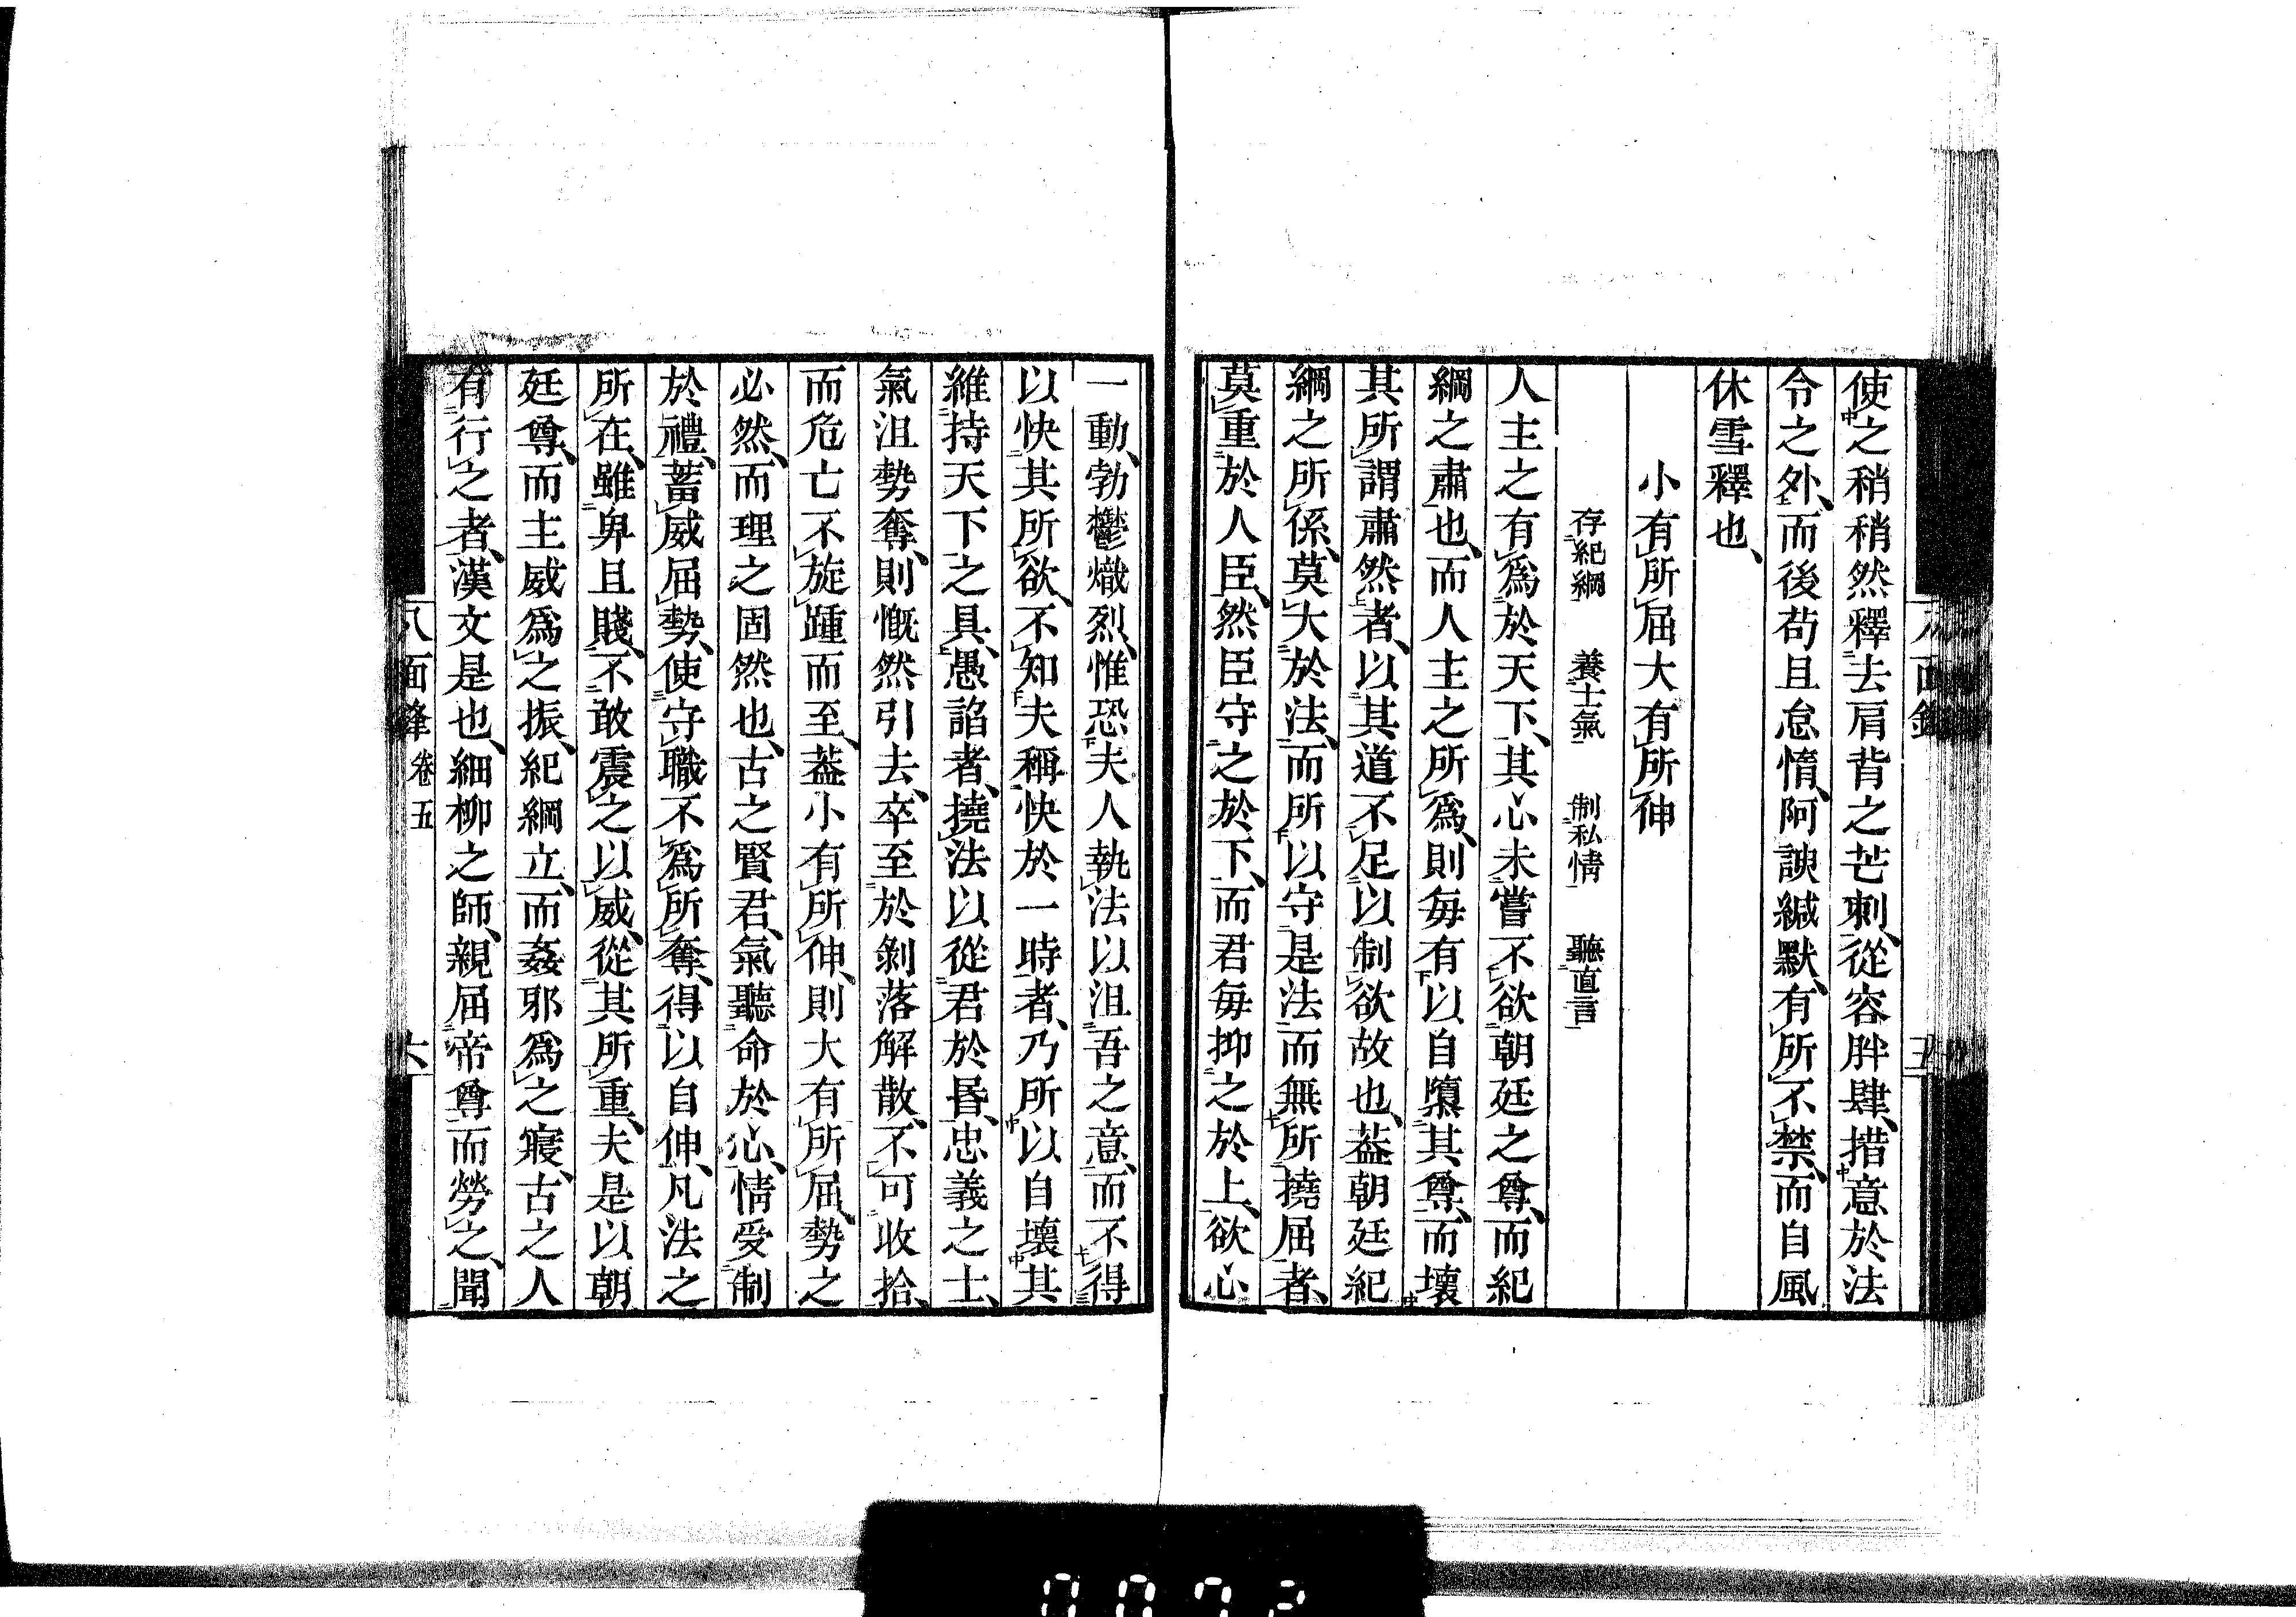 使之稍稍然釋去肩背之芒刺、從容胖肆、措意於法
令之外、而後苟且怠惰、阿諛緘默、有所不禁、而自風
休雪釋也、
小有所屈大有所伸
存紀綱　養士氣　制私情　聽直言
人主之有為於天下、其心未嘗不欲朝廷之尊、而紀
綱之肅也、而人主之所為、則每有以自隳其尊、而壞
其所謂肅然者、以其道不足以制欲故也、葢朝廷紀
綱之所係、莫大於法、而所以守是法而無所撓屈者、
莫重於人臣、然臣守之於下、而君每抑之於上、欲心
一動、勃鬱熾烈、惟恐夫人執法以沮吾之意、而不得
以快其所欲、不知夫稱快於一時者、乃所以自壞其
維持天下之具、愚諂者、撓法以從君於昬、忠義之士、
氣沮勢奪、則慨然引去、卒至於剝落解散、不可收拾、
而危亡不旋踵而至、葢小有所伸、則大有所屈、勢之
必然、而理之固然也、古之賢君、氣聽命於心、情受制
於禮、蓄威屈勢、使守職不為所奪、得以自伸、凡法之
所在、雖卑且賤、不敢震之以威、從其所重、夫是以朝
廷尊、而主威為之振、紀綱立、而姦邪為之寢、古之人
有行之者、漢文是也、細柳之師、親屈帝尊而勞之、聞
八面鋒 卷五 六